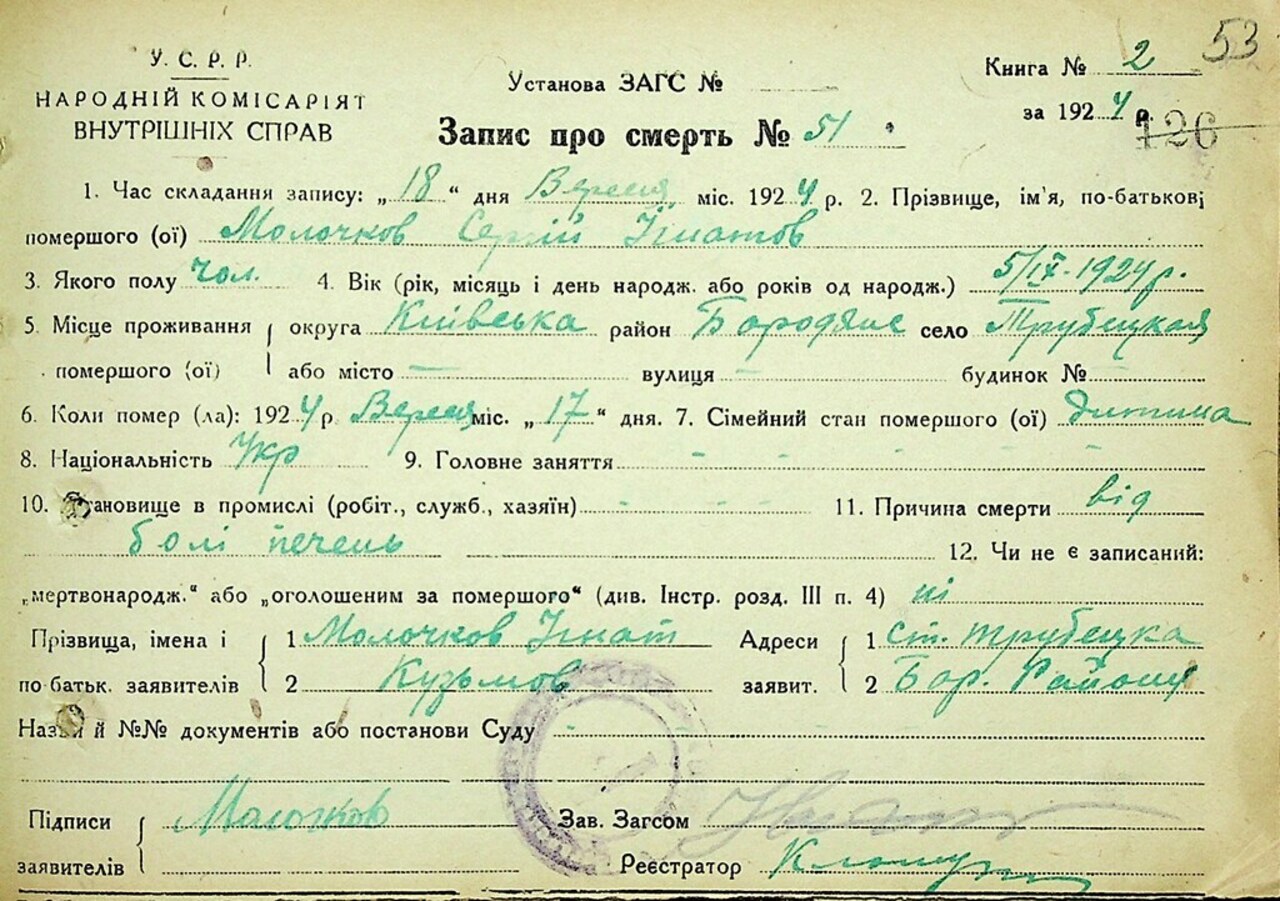 53
У. С. Р. Р.
НАРОДНІЙ КОМІСАРІЯТ
ВНУТРІШНІХ СПРАВ
Установа ЗАГС №
Книга № 2
за 1924 р.
126
Запис про смерть № 51
1. Час складання запису: „18“ дня Вересня міс. 1924 р. 2. Прізвище, ім'я, по-батькові
помершого (ої) Молочков Сергій Ігнатов
3. Якого полу чол. 4. Вік (рік, місяць і день народж. або років од народж.) 5/IX-1924 р.
5. Місце проживання округа Київська район Бородянс село Трубецкая
помершого (ої) або місто — вулиця — будинок №
6. Коли помер (ла): 1924 р Вересня міс. „17“ дня. 7. Сімейний стан помершого (ої) дитина
8. Національність Укр 9. Головне заняття - - - -
10. Становище в промислі (робіт., служб., хазяїн) - - - 11. Причина смерти від
болі печень 12. Чи не є записаний:
„мертвонародж.“ або „оголошеним за помершого“ (див. Інстр. розд. III п. 4) ні
Прізвища, імена і 1 Молочков Ігнат Адреси 1 Ст. Трубецка
по батьк. заявителів 2 Кузьмов заявит. 2 Бор. Району
Назви й №№ документів або постанови Суду -
Підписи Молочков Зав. Загсом
заявителів Реєстратор